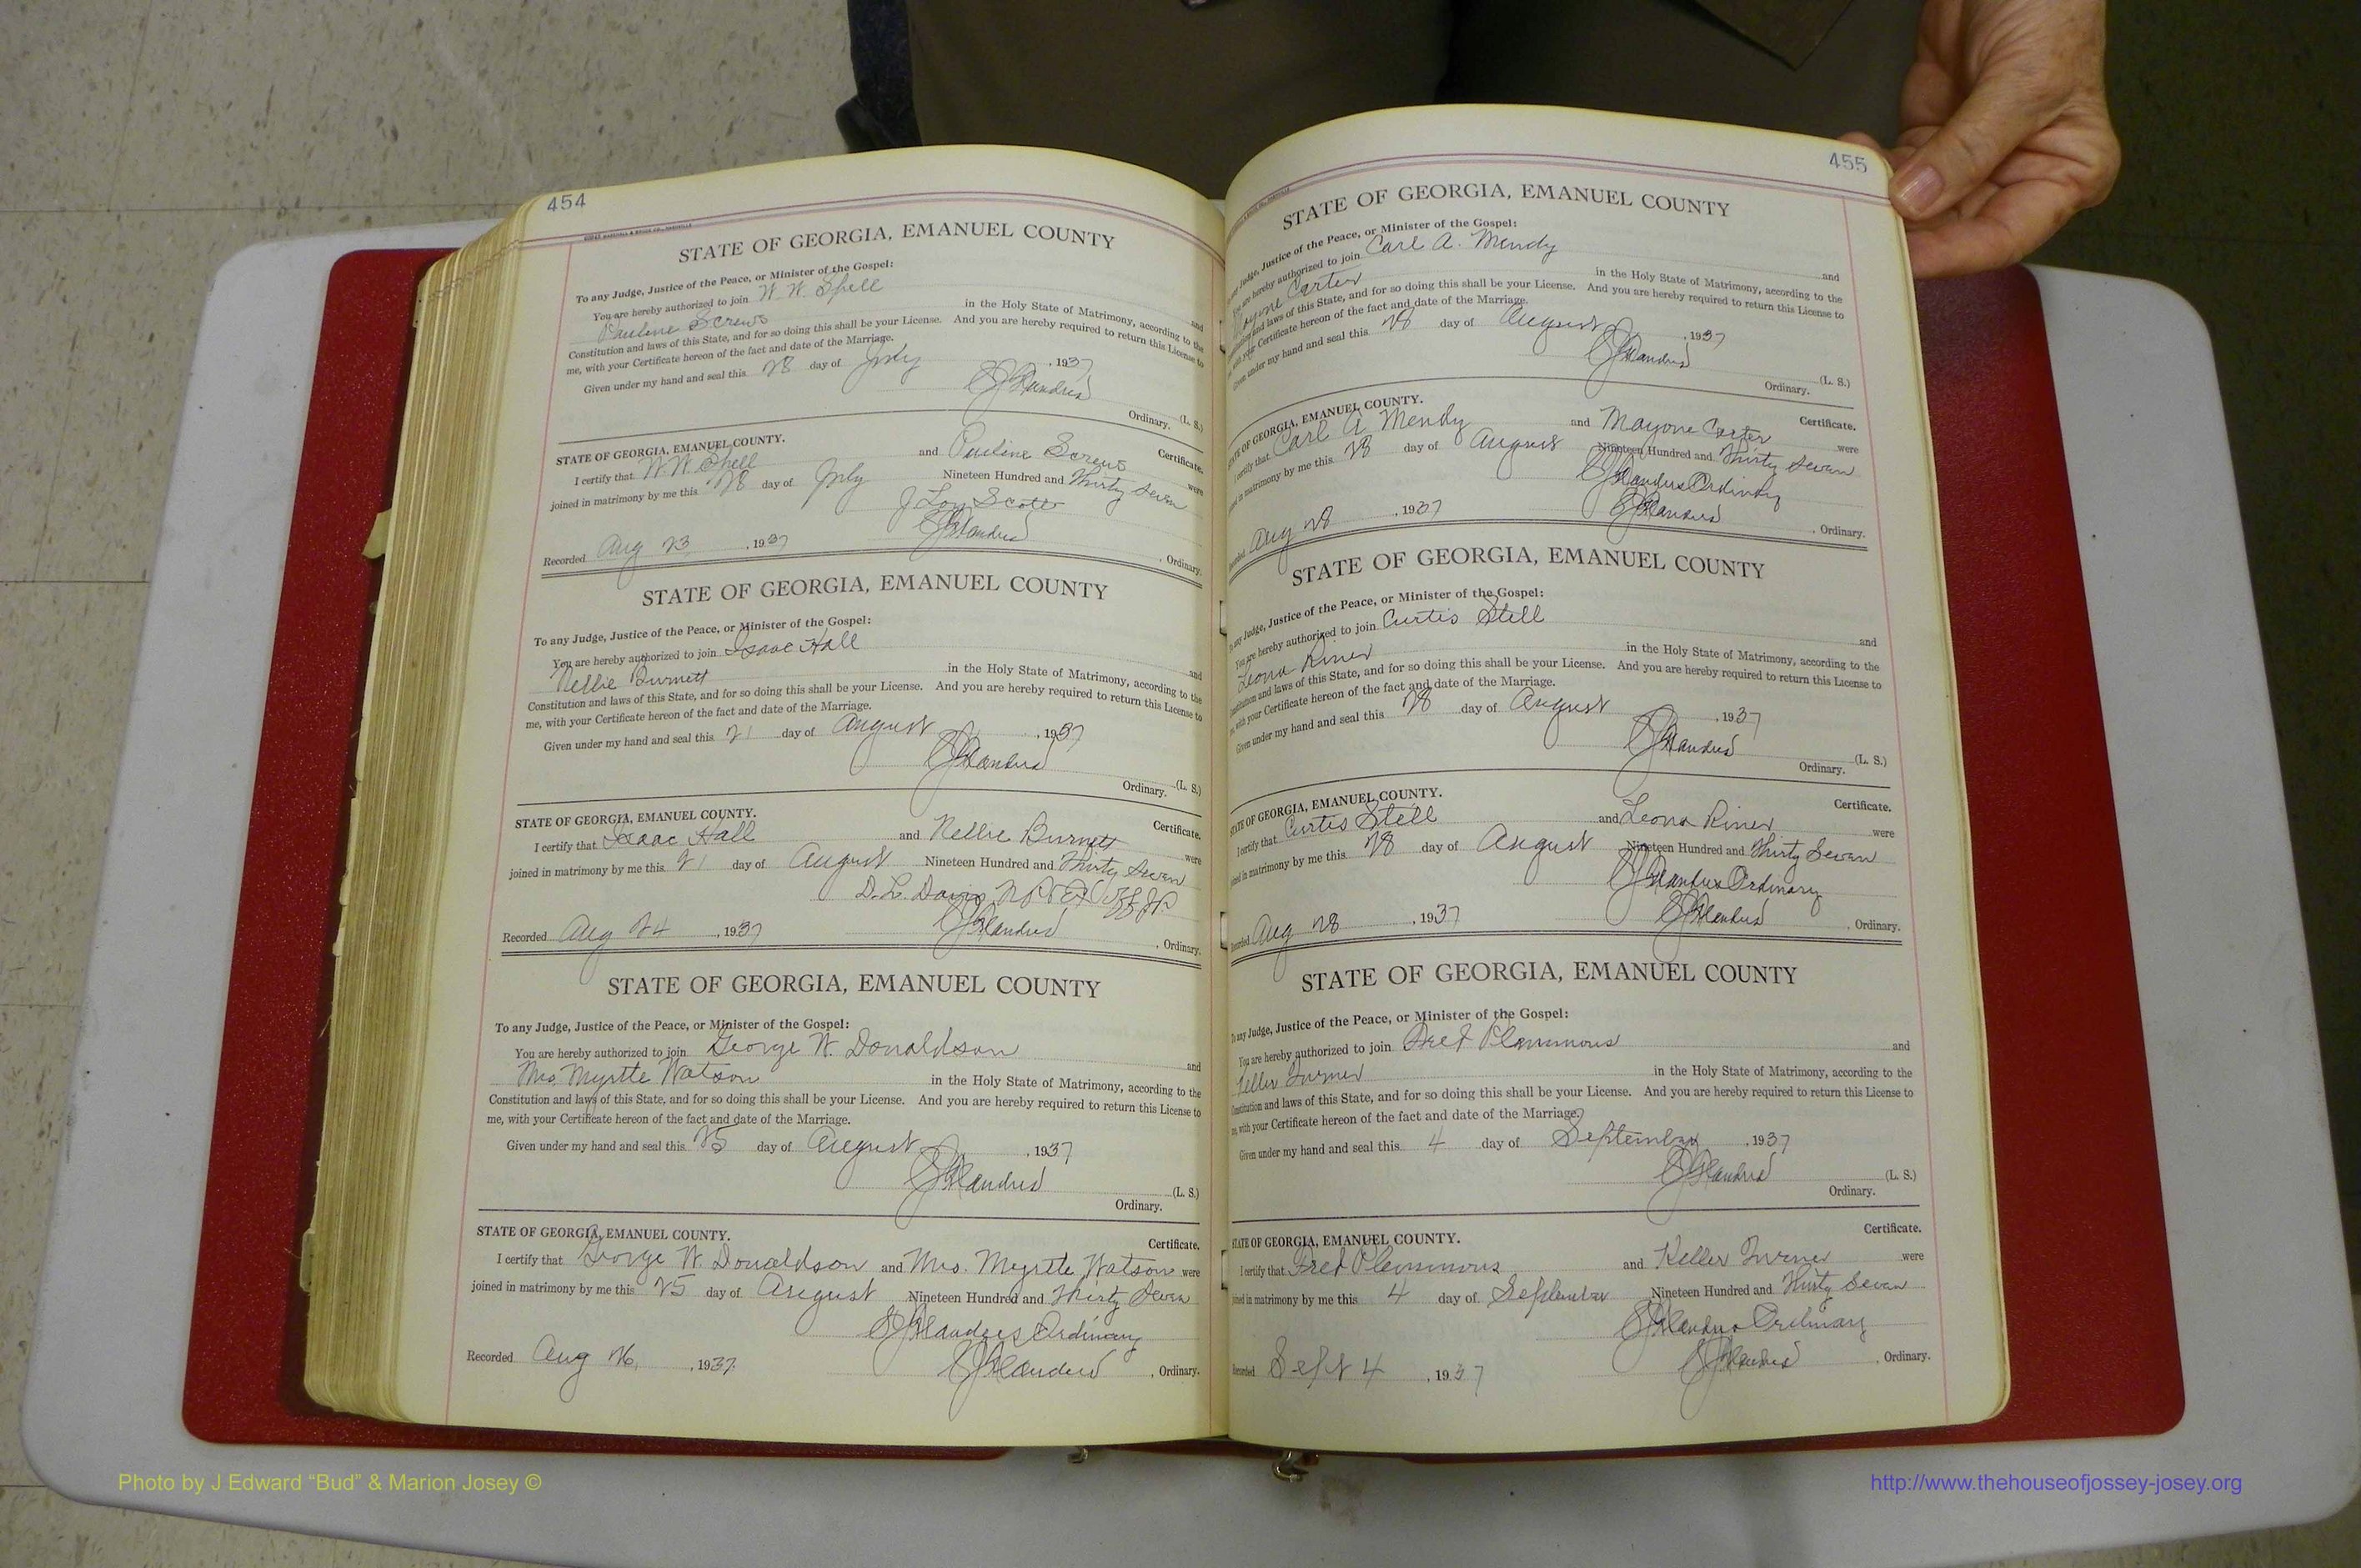 454
STATE OF GEORGIA, EMANUEL COUNTY
To any Judge, Justice of the Peace, or Minister of the Gospel:
You are hereby authorized to join W. W. Spell and
Pauline Screws in the Holy State of Matrimony, according to the
Constitution and laws of this State, and for so doing this shall be your License. And you are hereby required to return this License to
me, with your Certificate hereon of the fact and date of the Marriage.
Given under my hand and seal this 28 day of July, 1937
(L. S.)
Ordinary.
STATE OF GEORGIA, EMANUEL COUNTY. Certificate.
I certify that W. W. Spell and Pauline Screws were
joined in matrimony by me this 28 day of July Nineteen Hundred and Thirty Seven
J Lon Scott
Recorded Aug 23, 1937, Ordinary.
STATE OF GEORGIA, EMANUEL COUNTY
To any Judge, Justice of the Peace, or Minister of the Gospel:
You are hereby authorized to join Isaac Hall and
Nellie Burnett in the Holy State of Matrimony, according to the
Constitution and laws of this State, and for so doing this shall be your License. And you are hereby required to return this License to
me, with your Certificate hereon of the fact and date of the Marriage.
Given under my hand and seal this 21 day of August, 1937
(L. S.)
Ordinary.
STATE OF GEORGIA, EMANUEL COUNTY. Certificate.
I certify that Isaac Hall and Nellie Burnett were
joined in matrimony by me this 21 day of August Nineteen Hundred and Thirty Seven
D. L. Davis
Recorded Aug 24, 1937, Ordinary.
STATE OF GEORGIA, EMANUEL COUNTY
To any Judge, Justice of the Peace, or Minister of the Gospel:
You are hereby authorized to join George W. Donaldson and
Mrs. Myrtle Watson in the Holy State of Matrimony, according to the
Constitution and laws of this State, and for so doing this shall be your License. And you are hereby required to return this License to
me, with your Certificate hereon of the fact and date of the Marriage.
Given under my hand and seal this 25 day of August, 1937
(L. S.)
Ordinary.
STATE OF GEORGIA, EMANUEL COUNTY. Certificate.
I certify that George W. Donaldson and Mrs. Myrtle Watson were
joined in matrimony by me this 25 day of August Nineteen Hundred and Thirty Seven
Ordinary
Recorded Aug 26, 1937, Ordinary.
455
STATE OF GEORGIA, EMANUEL COUNTY
any Judge, Justice of the Peace, or Minister of the Gospel:
You are hereby authorized to join Carl A. Mendy and
Carter in the Holy State of Matrimony, according to the
and laws of this State, and for so doing this shall be your License. And you are hereby required to return this License to
with your Certificate hereon of the fact and date of the Marriage.
Given under my hand and seal this 28 day of August, 1937
(L. S.)
Ordinary.
STATE OF GEORGIA, EMANUEL COUNTY. Certificate.
I certify that Carl A Mendy and Mayone Carter were
in matrimony by me this 28 day of August Nineteen Hundred and Thirty Seven
Ordinary
Aug 28, 1937, Ordinary.
STATE OF GEORGIA, EMANUEL COUNTY
any Judge, Justice of the Peace, or Minister of the Gospel:
You are hereby authorized to join Curtis Stell and
Leona Riner in the Holy State of Matrimony, according to the
and laws of this State, and for so doing this shall be your License. And you are hereby required to return this License to
me, with your Certificate hereon of the fact and date of the Marriage.
Given under my hand and seal this 28 day of August, 1937
(L. S.)
Ordinary.
STATE OF GEORGIA, EMANUEL COUNTY. Certificate.
I certify that Curtis Stell and Leona Riner were
joined in matrimony by me this 28 day of August Nineteen Hundred and Thirty Seven
Ordinary
Aug 28, 1937, Ordinary.
STATE OF GEORGIA, EMANUEL COUNTY
To any Judge, Justice of the Peace, or Minister of the Gospel:
You are hereby authorized to join Fred Plemmons and
Keller Turner in the Holy State of Matrimony, according to the
Constitution and laws of this State, and for so doing this shall be your License. And you are hereby required to return this License to
me, with your Certificate hereon of the fact and date of the Marriage.
Given under my hand and seal this 4 day of September, 1937
(L. S.)
Ordinary.
STATE OF GEORGIA, EMANUEL COUNTY. Certificate.
I certify that Fred Plemmons and Keller Turner were
joined in matrimony by me this 4 day of September Nineteen Hundred and Thirty Seven
Ordinary
Recorded Sept 4, 1937, Ordinary.
Photo by J Edward “Bud” & Marion Josey ©
http://www.thehouseofjossey-josey.org